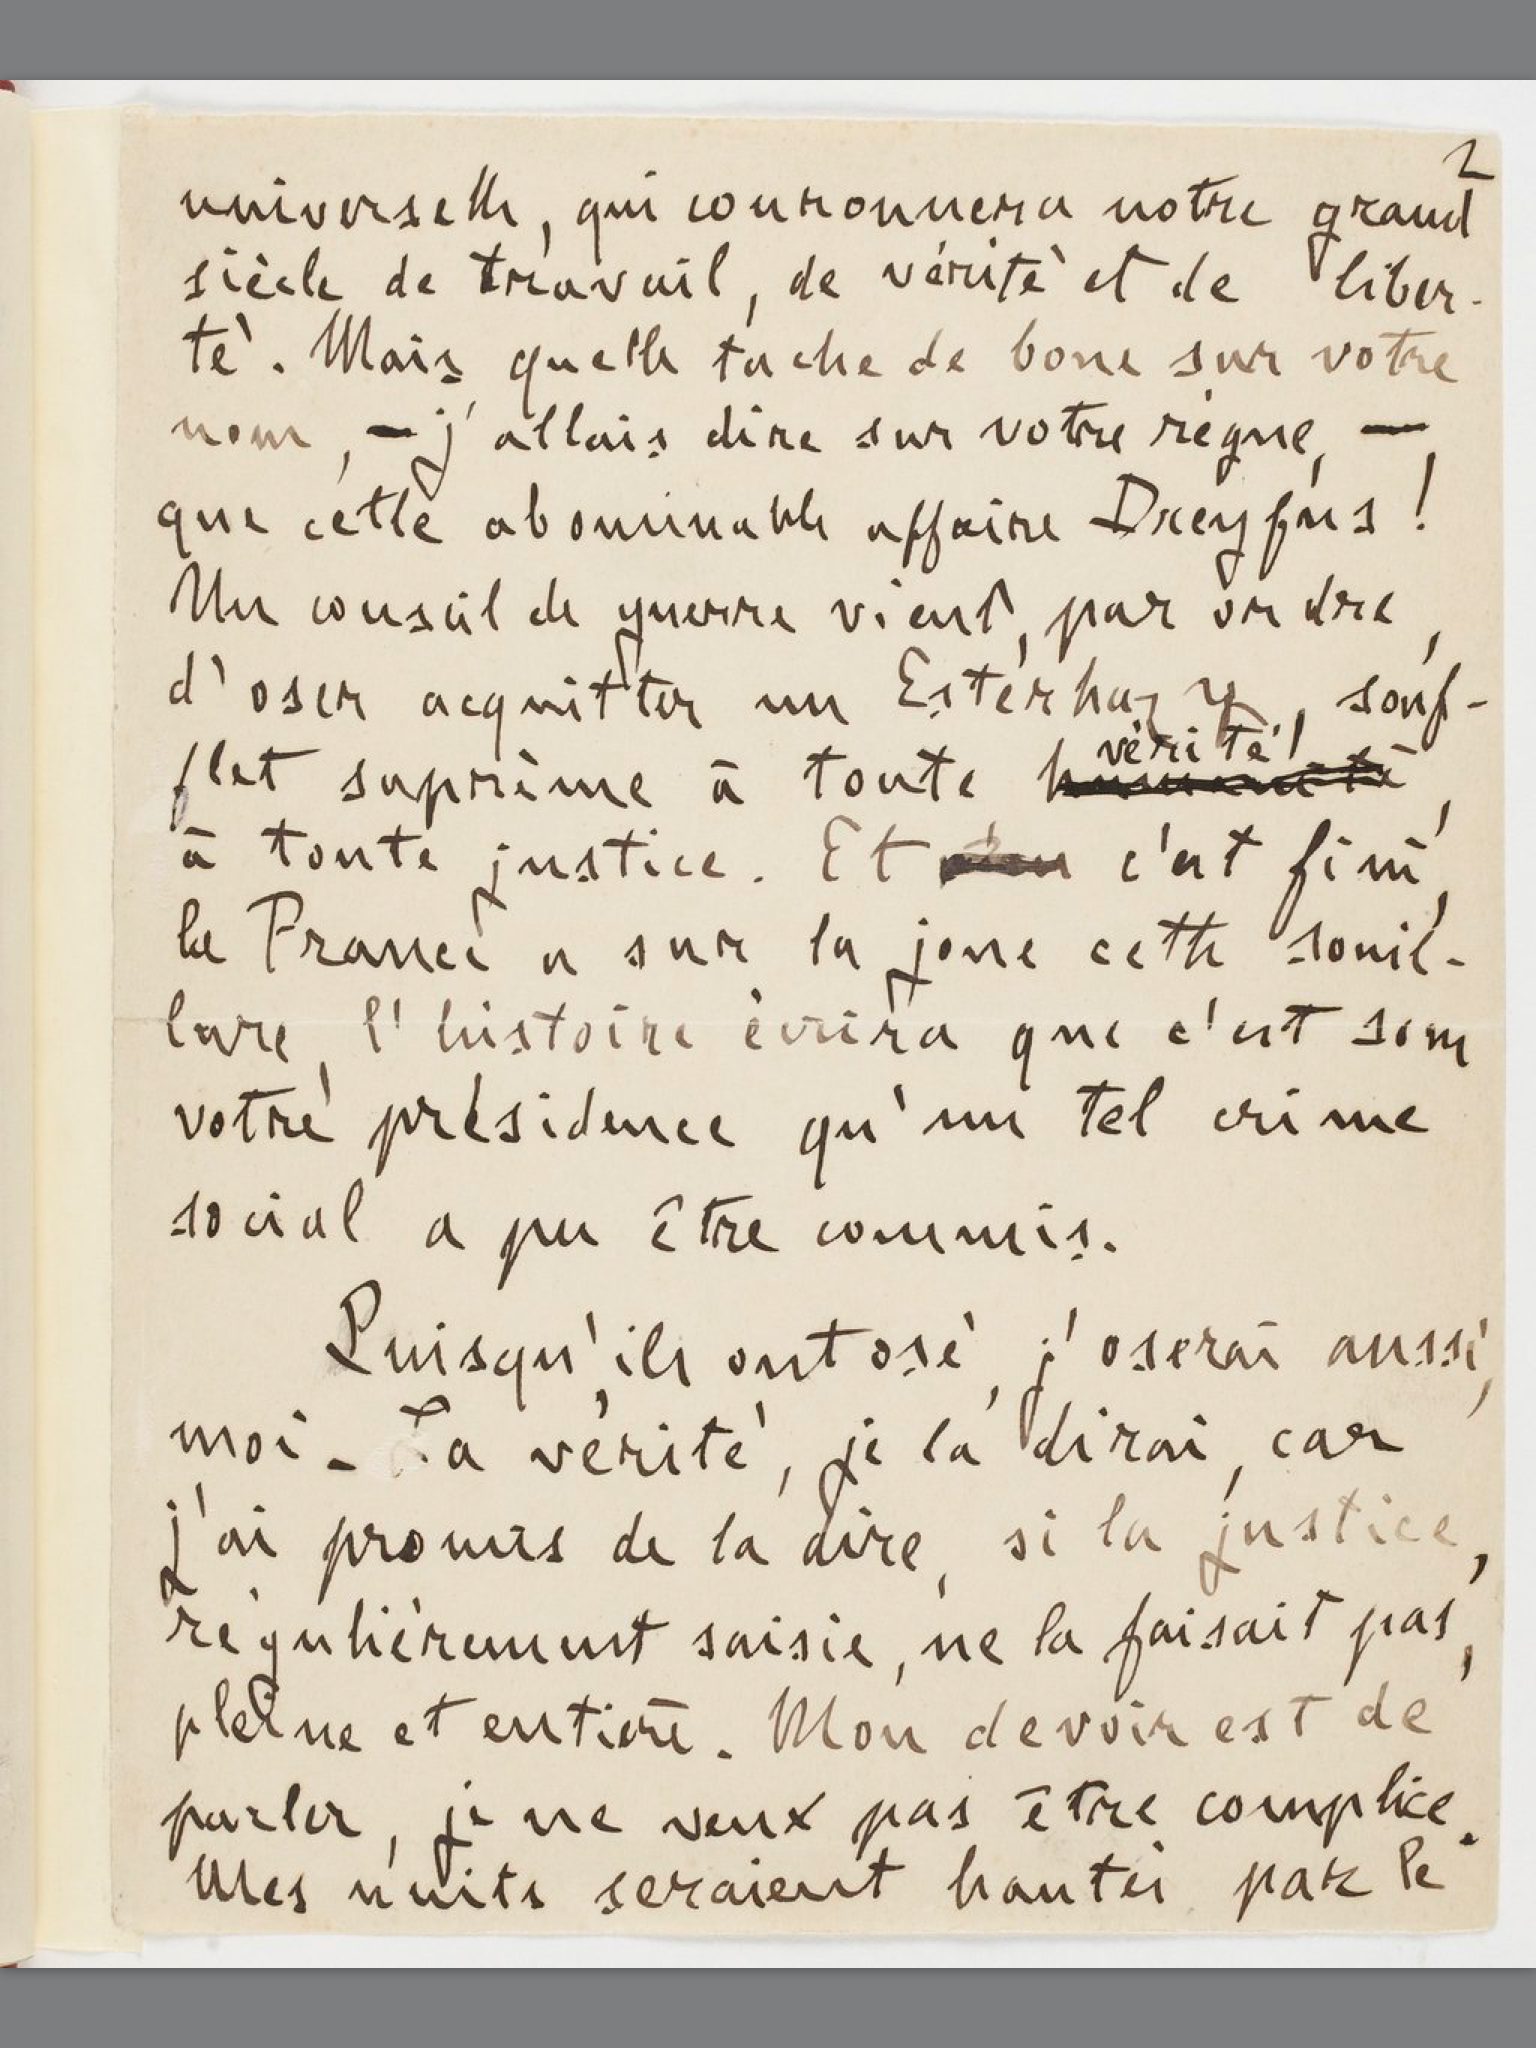 2
universelle, qui couronnera notre grand
siècle de travail, de vérité et de liber-
té. Mais quelle tache de boue sur votre
nom, — j'allais dire sur votre règne, —
que cette abominable affaire Dreyfus !
Un conseil de guerre vient, par ordre,
d'oser acquitter un Esterhazy, souf-
vérité,
flet suprême à toute humanité,
à toute justice. Et c'est fini,
la France a sur la joue cette souil-
lure, l'histoire écrira que c'est sous
votre présidence qu'un tel crime
social a pu être commis.
Puisqu'ils ont osé, j'oserai aussi,
moi. La vérité, je la dirai, car
j'ai promis de la dire, si la justice,
régulièrement saisie, ne la faisait pas,
pleine et entière. Mon devoir est de
parler, je ne veux pas être complice.
Mes nuits seraient hantées par le